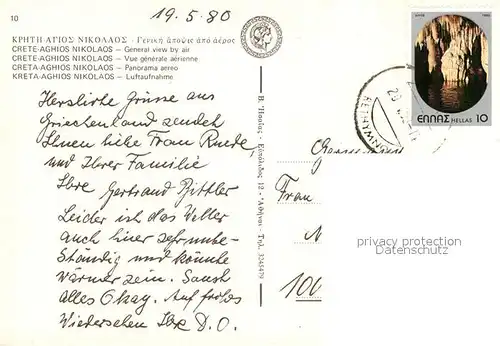 10
19.5.80
ΚΡΗΤΗ ΑΓΙΟΣ ΝΙΚΟΛΑΟΣ - Γενική ἄποψις ἀπό ἀέρος
CRETE-AGHIOS NIKOLAOS – General view by air
CRETE-AGHIOS NIKOLAOS – Vue générale aérienne
CRETA-AGHIOS NIKOLAOS – Panorama aereo
KRETA-AGHIOS NIKOLAOS – Luftaufnahme
Herzliche Grüsse aus
Griechenland sendet
Ihnen liebe Frau
und Ihrer Familie
Ihre Gertraud
Leider ist das Wetter
auch hier sehr unbe-
ständig und könnte
wärmer sein. Sonst
alles Okay. Auf frohes
Wiedersehen Ihre D. O.
12 - Ἀθῆναι - Τηλ. 3245479
ΕΛΛΑΣ HELLAS 10
Frau
100
privacy protection
Datenschutz